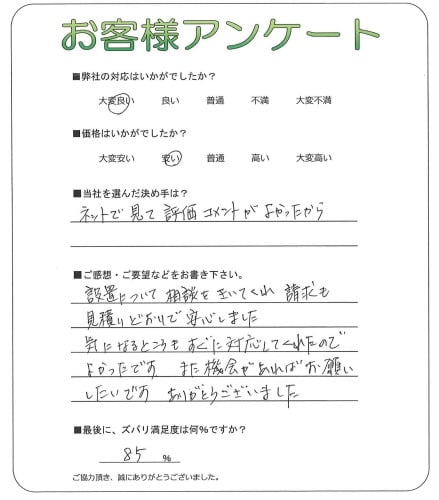 お客様アンケート
■弊社の対応はいかがでしたか？
大変良い 良い 普通 不満 大変不満
■価格はいかがでしたか？
大変安い 安い 普通 高い 大変高い
■当社を選んだ決め手は？
ネットで見て 評価コメントがよかったから
■ご感想・ご要望などをお書き下さい。
設置について 相談を きいてくれ 請求も
見積りどおりで安心しました
気になるところもすぐに対応してくれたので
よかったです また機会があればお願い
したいです ありがとうございました
■最後に、ズバリ満足度は何%ですか？
85 %
ご協力頂き、誠にありがとうございました。